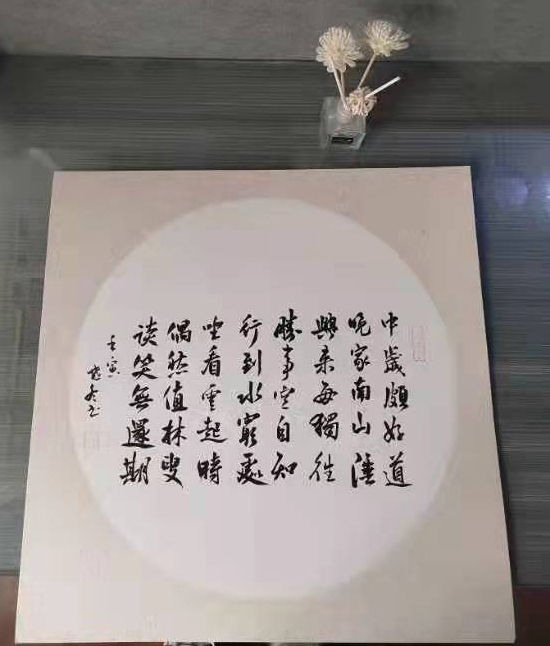 中歲頗好道
晚家南山陲
興来每獨往
勝事空自知
行到水窮處
坐看雲起時
偶然值林叟
談笑無還期
壬寅